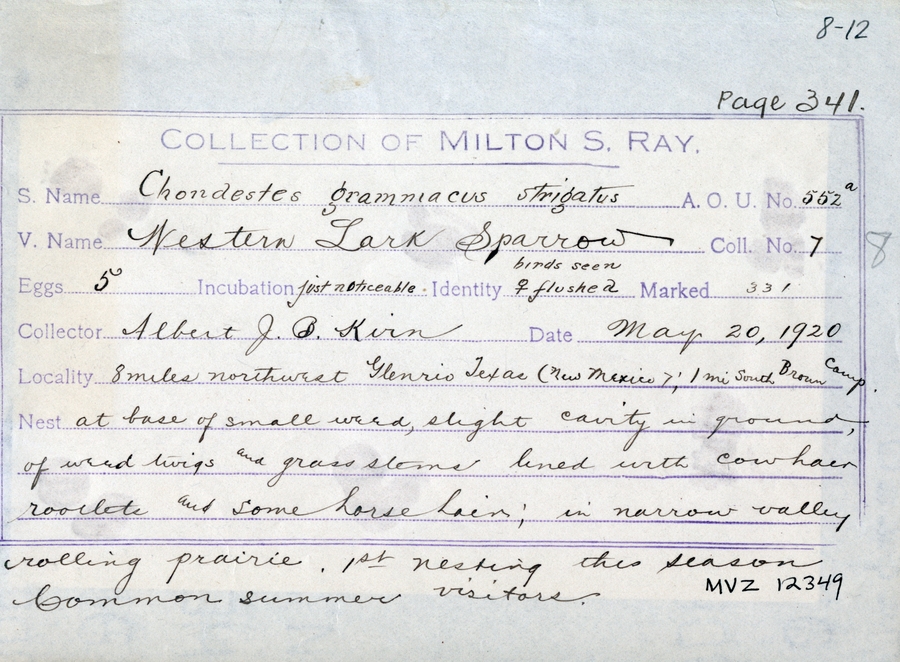 8-12
Page 341.
COLLECTION OF MILTON S. RAY.
S. Name Chondestes grammacus strigatus A. O. U. No. 552a
V. Name Western Lark Sparrow Coll. No. 7
8
birds seen
Eggs 5 Incubation just noticeable. Identity ♀ flushed Marked 331
Collector Albert J. B. Kirn Date May 20, 1920
Locality 8 miles northwest Glenrio Texas (New Mexico); 1 mi South Brown Camp.
Nest at base of small weed, slight cavity in ground,
of weed twigs and grass stems lined with cowhair
rootlets and some horse hair; in narrow valley
rolling prairie. 1st nesting this season
Common summer visitors.
MVZ 12349